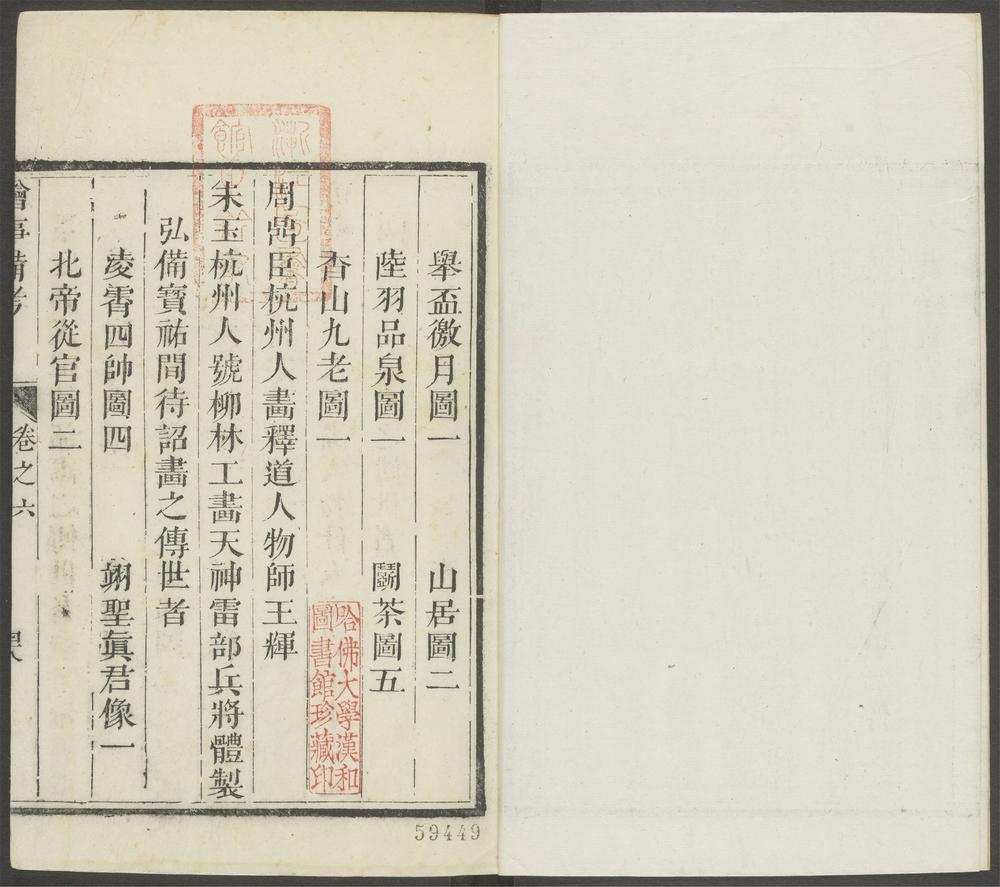 舉盃徼月圖一　山居圖二
陸羽品泉圖一　鬬茶圖五
香山九老圖一
周鼎臣杭州人畵釋道人物師王輝
朱玉杭州人號柳林工畵天神雷部兵將體製
弘備寶祐間待詔畵之傳世者
凌霄四帥圖四　翊聖眞君像一
北帝從官圖二
繪事備考　卷之六
哈佛大學漢和
圖書館珍藏印
59449